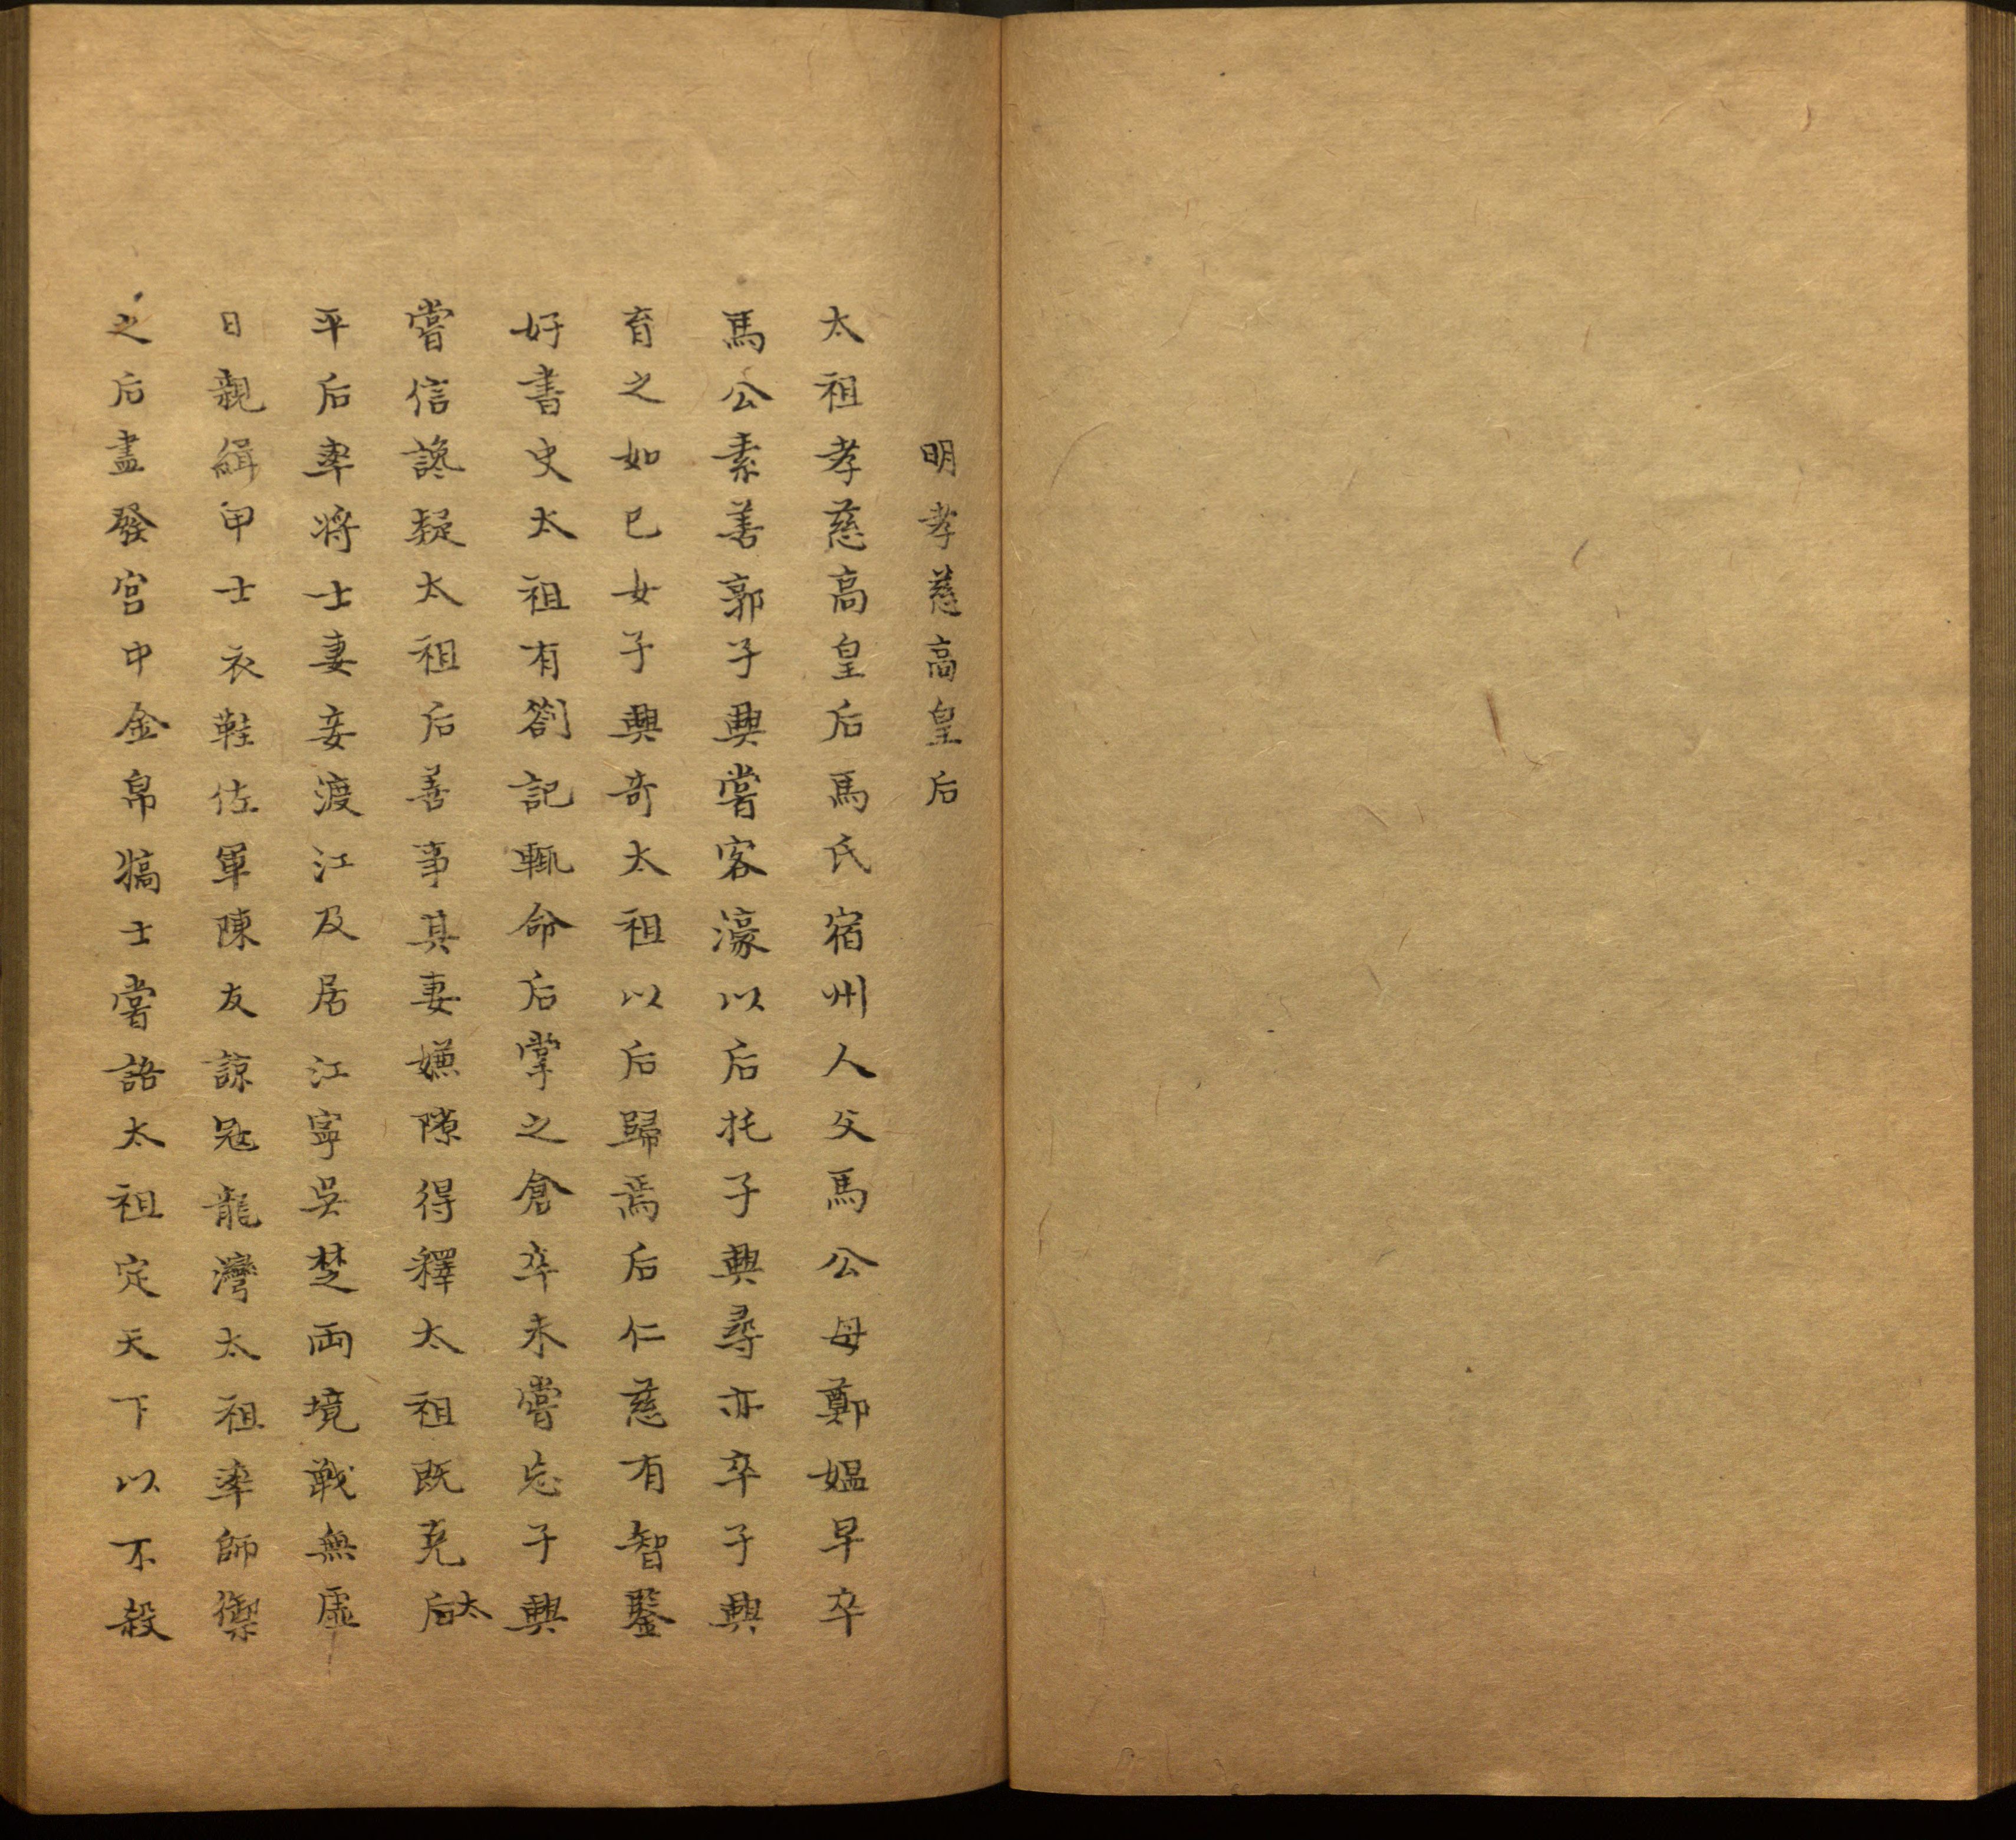 明孝慈高皇后
太祖孝慈高皇后馬氏宿州人父馬公母鄭媼早卒
馬公素善郭子興嘗客濠以后托子興尋亦卒子興
育之如己女子興奇太祖以后歸焉后仁慈有智鑒
好書史太祖有劄記輒命后掌之倉卒未嘗忘子興
嘗信讒疑太祖后善事其妻嫌隙得釋太祖既克太后
平后率將士妻妾渡江及居江寧吳楚兩境戰無虛
日親緝甲士衣鞋佐軍陳友諒冦龍灣太祖率師禦
之后盡發宮中金帛犒士嘗語太祖定天下以不殺